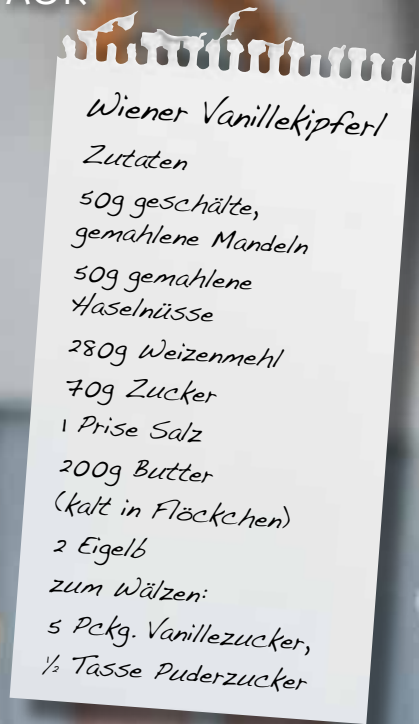 Wiener Vanillekipferl
Zutaten
50g geschälte,
gemahlene Mandeln
50g gemahlene
Haselnüsse
280g Weizenmehl
70g Zucker
1 Prise Salz
200g Butter
(kalt in Flöckchen)
2 Eigelb
zum Wälzen:
5 Pckg. Vanillezucker,
½ Tasse Puderzucker